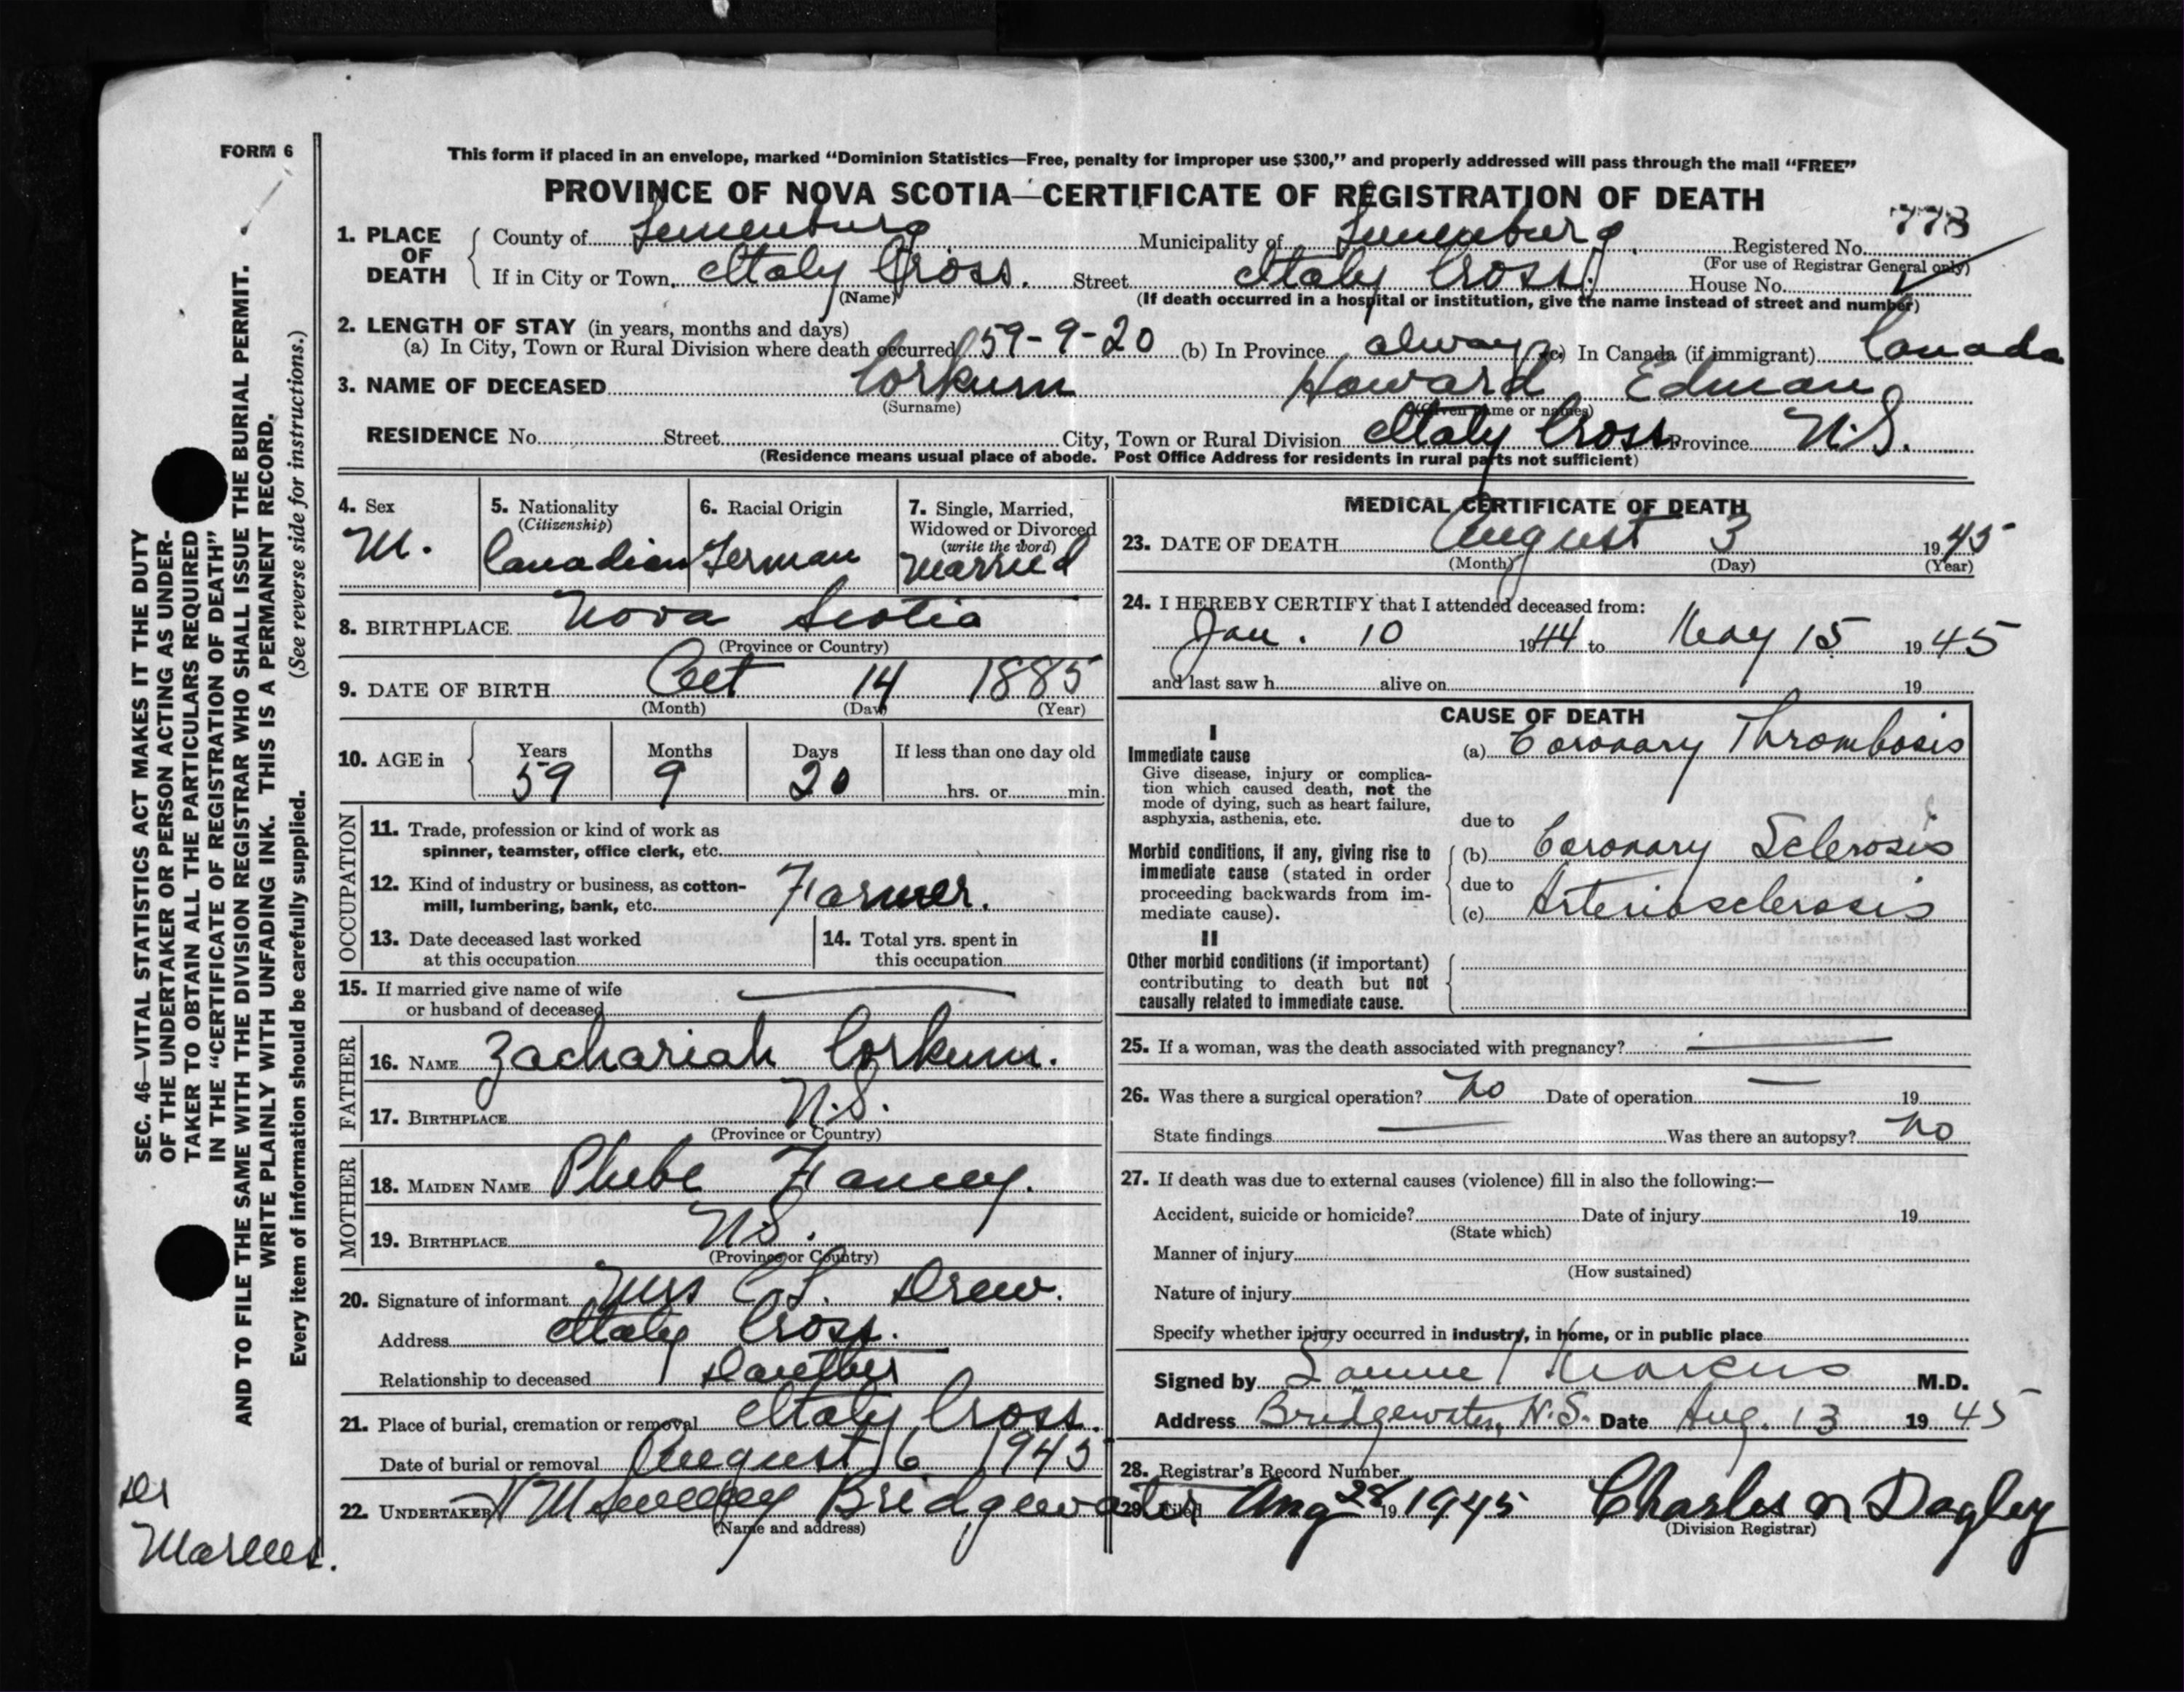 FORM 6
This form if placed in an envelope, marked “Dominion Statistics—Free, penalty for improper use $300,” and properly addressed will pass through the mail “FREE”
PROVINCE OF NOVA SCOTIA—CERTIFICATE OF REGISTRATION OF DEATH
778
1. PLACE OF DEATH
County of Lunenburg Municipality of Lunenburg. Registered No.
(For use of Registrar General only)
If in City or Town, Italy Cross. Street Italy Cross. House No.
(Name) (If death occurred in a hospital or institution, give the name instead of street and number)
2. LENGTH OF STAY (in years, months and days)
(a) In City, Town or Rural Division where death occurred 59-9-20 (b) In Province always (c) In Canada (if immigrant) Canada
3. NAME OF DECEASED Corkum Howard Edman
(Surname) (Given name or names)
RESIDENCE No. Street City, Town or Rural Division Italy Cross Province N.S.
(Residence means usual place of abode. Post Office Address for residents in rural parts not sufficient)
4. Sex
M.
5. Nationality
(Citizenship)
Canadian
6. Racial Origin
German
7. Single, Married,
Widowed or Divorced
(write the word)
Married
8. BIRTHPLACE Nova Scotia
(Province or Country)
9. DATE OF BIRTH Oct 14 1885
(Month) (Day) (Year)
10. AGE in
Years Months Days If less than one day old
59 9 20 hrs. or min.
OCCUPATION
11. Trade, profession or kind of work as
spinner, teamster, office clerk, etc.
12. Kind of industry or business, as cotton-
mill, lumbering, bank, etc. Farmer.
13. Date deceased last worked
at this occupation
14. Total yrs. spent in
this occupation
15. If married give name of wife
or husband of deceased
FATHER
16. NAME Zachariah Corkum.
17. BIRTHPLACE N.S.
(Province or Country)
MOTHER
18. MAIDEN NAME Phebe Fancey.
19. BIRTHPLACE N.S.
(Province or Country)
20. Signature of informant Mrs C L. Drew.
Address Italy Cross.
Relationship to deceased
21. Place of burial, cremation or removal Italy Cross.
Date of burial or removal August 6 1945
22. UNDERTAKER Bridgewater
(Name and address)
MEDICAL CERTIFICATE OF DEATH
23. DATE OF DEATH August 3 1945
(Month) (Day) (Year)
24. I HEREBY CERTIFY that I attended deceased from:
Jan. 10 1944 to May 15 1945
and last saw h alive on 19
CAUSE OF DEATH
I
Immediate cause
Give disease, injury or complica-
tion which caused death, not the
mode of dying, such as heart failure,
asphyxia, asthenia, etc.
(a) Coronary Thrombosis
due to
Morbid conditions, if any, giving rise to
immediate cause (stated in order
proceeding backwards from im-
mediate cause).
(b) Coronary Sclerosis
due to
(c) Arteriosclerosis
II
Other morbid conditions (if important)
contributing to death but not
causally related to immediate cause.
25. If a woman, was the death associated with pregnancy?
26. Was there a surgical operation? no Date of operation 19
State findings Was there an autopsy? no
27. If death was due to external causes (violence) fill in also the following:—
Accident, suicide or homicide? Date of injury 19
(State which)
Manner of injury
(How sustained)
Nature of injury
Specify whether injury occurred in industry, in home, or in public place
Signed by Samuel Marcus M.D.
Address Bridgewater, N.S. Date Aug. 13 1945
28. Registrar's Record Number
29. Filed Aug 28 19 1945 Charles N Dagley
(Division Registrar)
SEC. 46—VITAL STATISTICS ACT MAKES IT THE DUTY
OF THE UNDERTAKER OR PERSON ACTING AS UNDER-
TAKER TO OBTAIN ALL THE PARTICULARS REQUIRED
IN THE “CERTIFICATE OF REGISTRATION OF DEATH”
AND TO FILE THE SAME WITH THE DIVISION REGISTRAR WHO SHALL ISSUE THE BURIAL PERMIT.
WRITE PLAINLY WITH UNFADING INK. THIS IS A PERMANENT RECORD.
Every item of information should be carefully supplied. (See reverse side for instructions.)
Dr
Marcus.